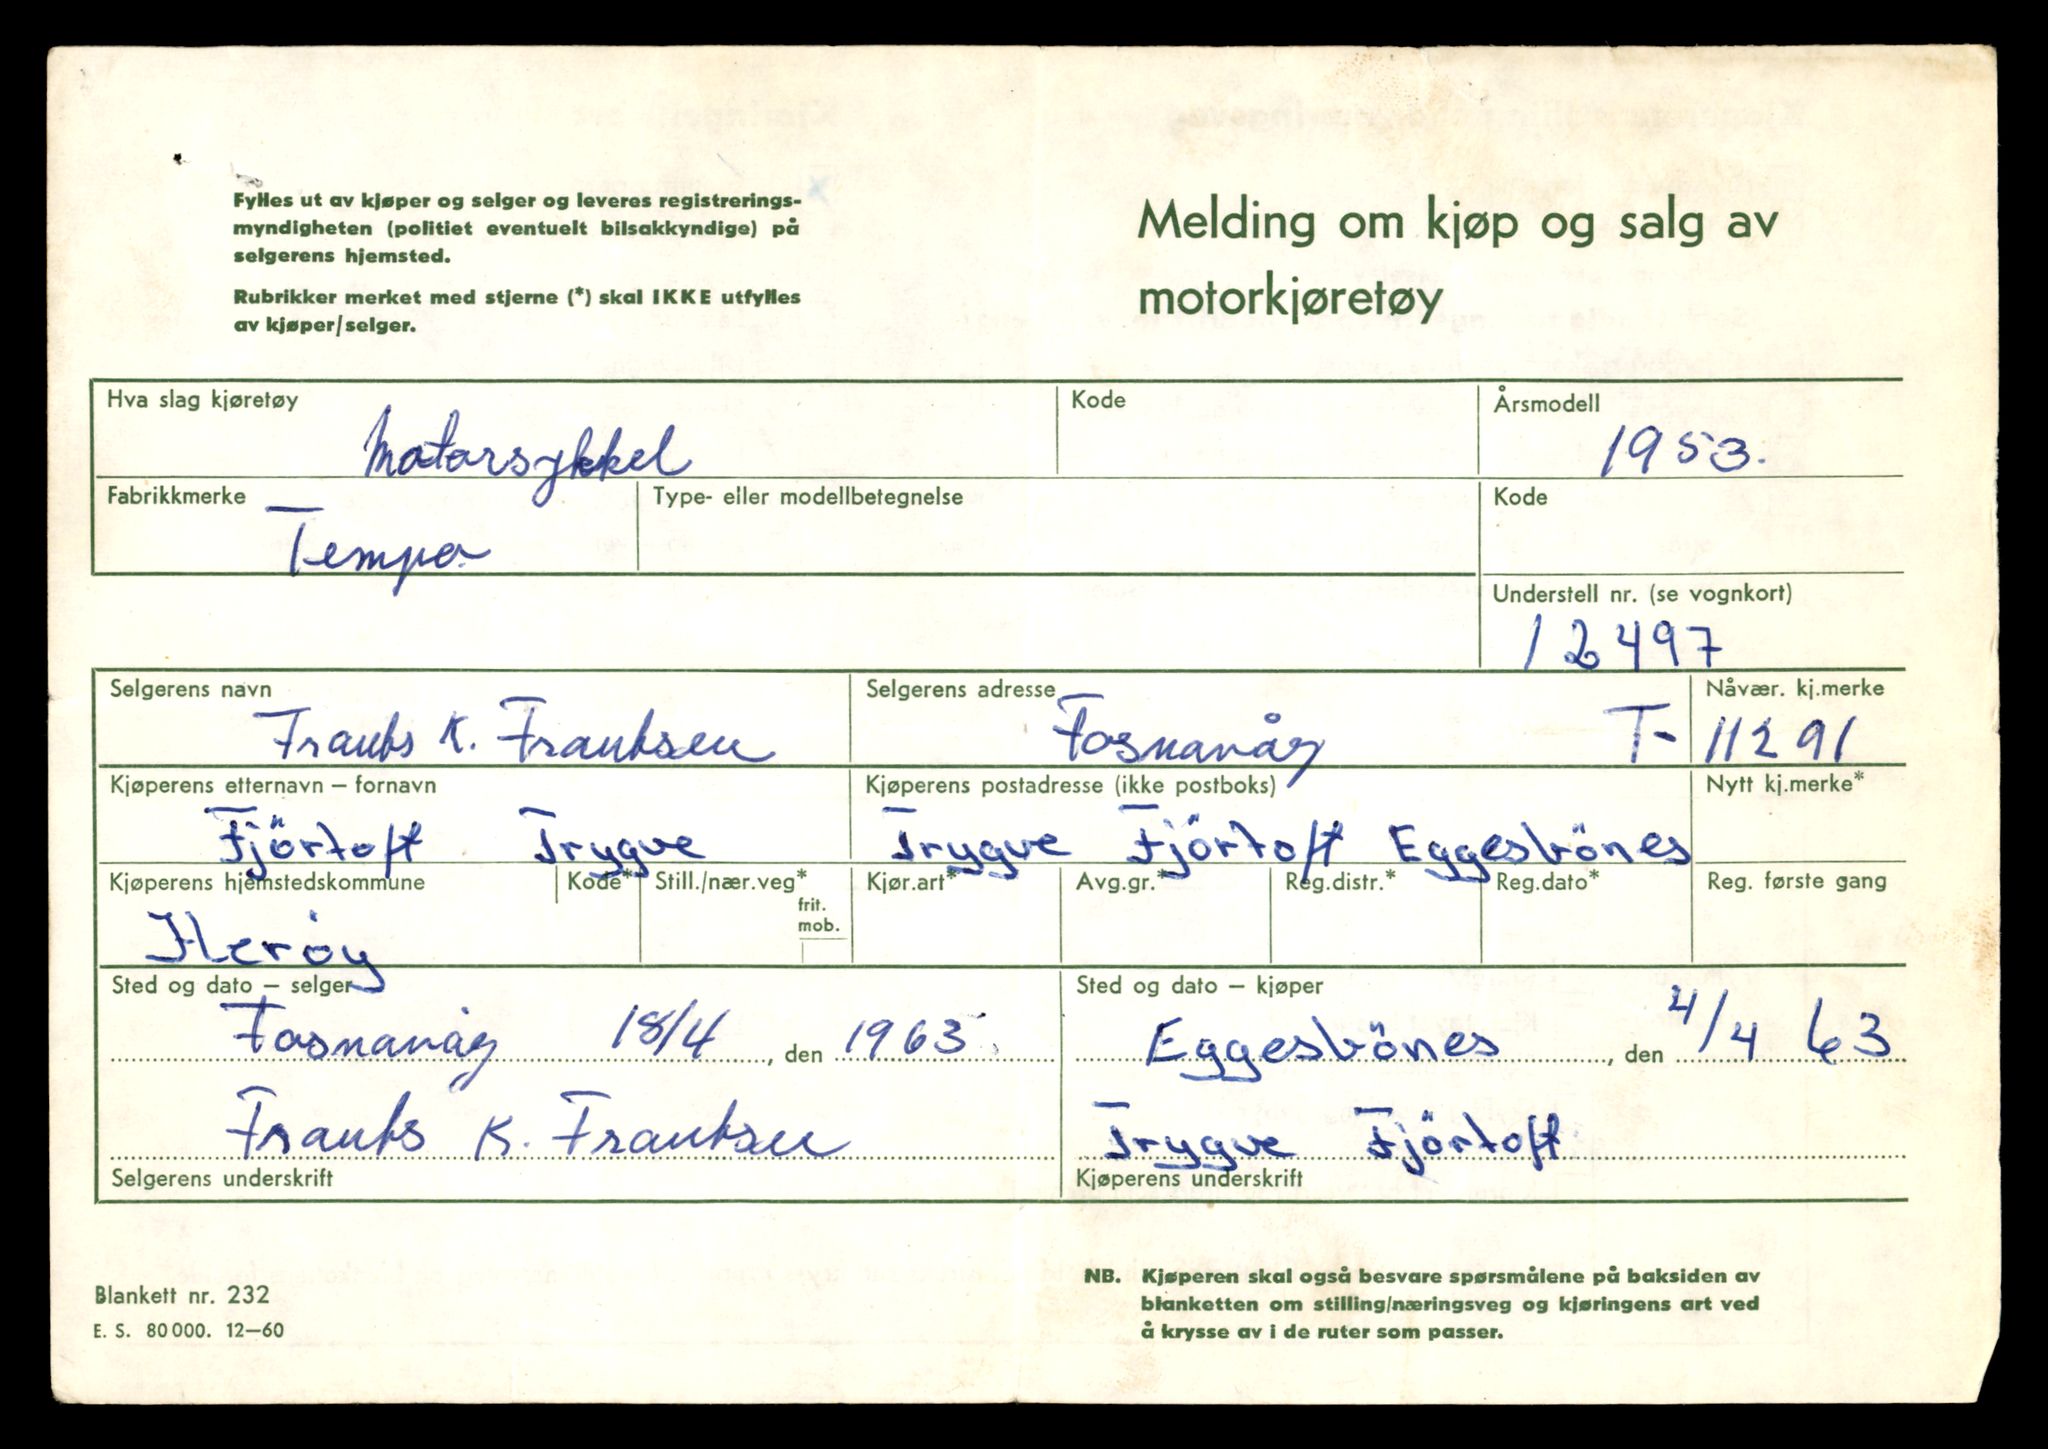 Fylles ut av kjøper og selger og leveres registrerings-
myndigheten (politiet eventuelt bilsakkyndige) på
selgerens hjemsted.
Rubrikker merket med stjerne (*) skal IKKE utfylles
av kjøper/selger.
Melding om kjøp og salg av
motorkjøretøy
Hva slag kjøretøy Kode Årsmodell
Motorsykkel 1953.
Fabrikkmerke Type- eller modellbetegnelse Kode
Tempo
Understell nr. (se vognkort)
12497
Selgerens navn Selgerens adresse Nåvær. kj.merke
Frants K. Frantsen Fosnavåg T- 11291
Kjøperens etternavn – fornavn Kjøperens postadresse (ikke postboks) Nytt kj.merke*
Fjörtoft Trygve Trygve Fjörtoft Eggesbönes
Kjøperens hjemstedskommune Kode* Still./nær.veg* Kjør.art* Avg.gr.* Reg.distr.* Reg.dato* Reg. første gang
frit.
mob.
Herøy
Sted og dato – selger Sted og dato – kjøper
Fosnavåg 18/4, den 1963. Eggesbönes, den 4/4 63
Frants K. Frantsen Trygve Fjörtoft
Selgerens underskrift Kjøperens underskrift
Blankett nr. 232
E. S. 80 000. 12–60
NB. Kjøperen skal også besvare spørsmålene på baksiden av
blanketten om stilling/næringsveg og kjøringens art ved
å krysse av i de ruter som passer.